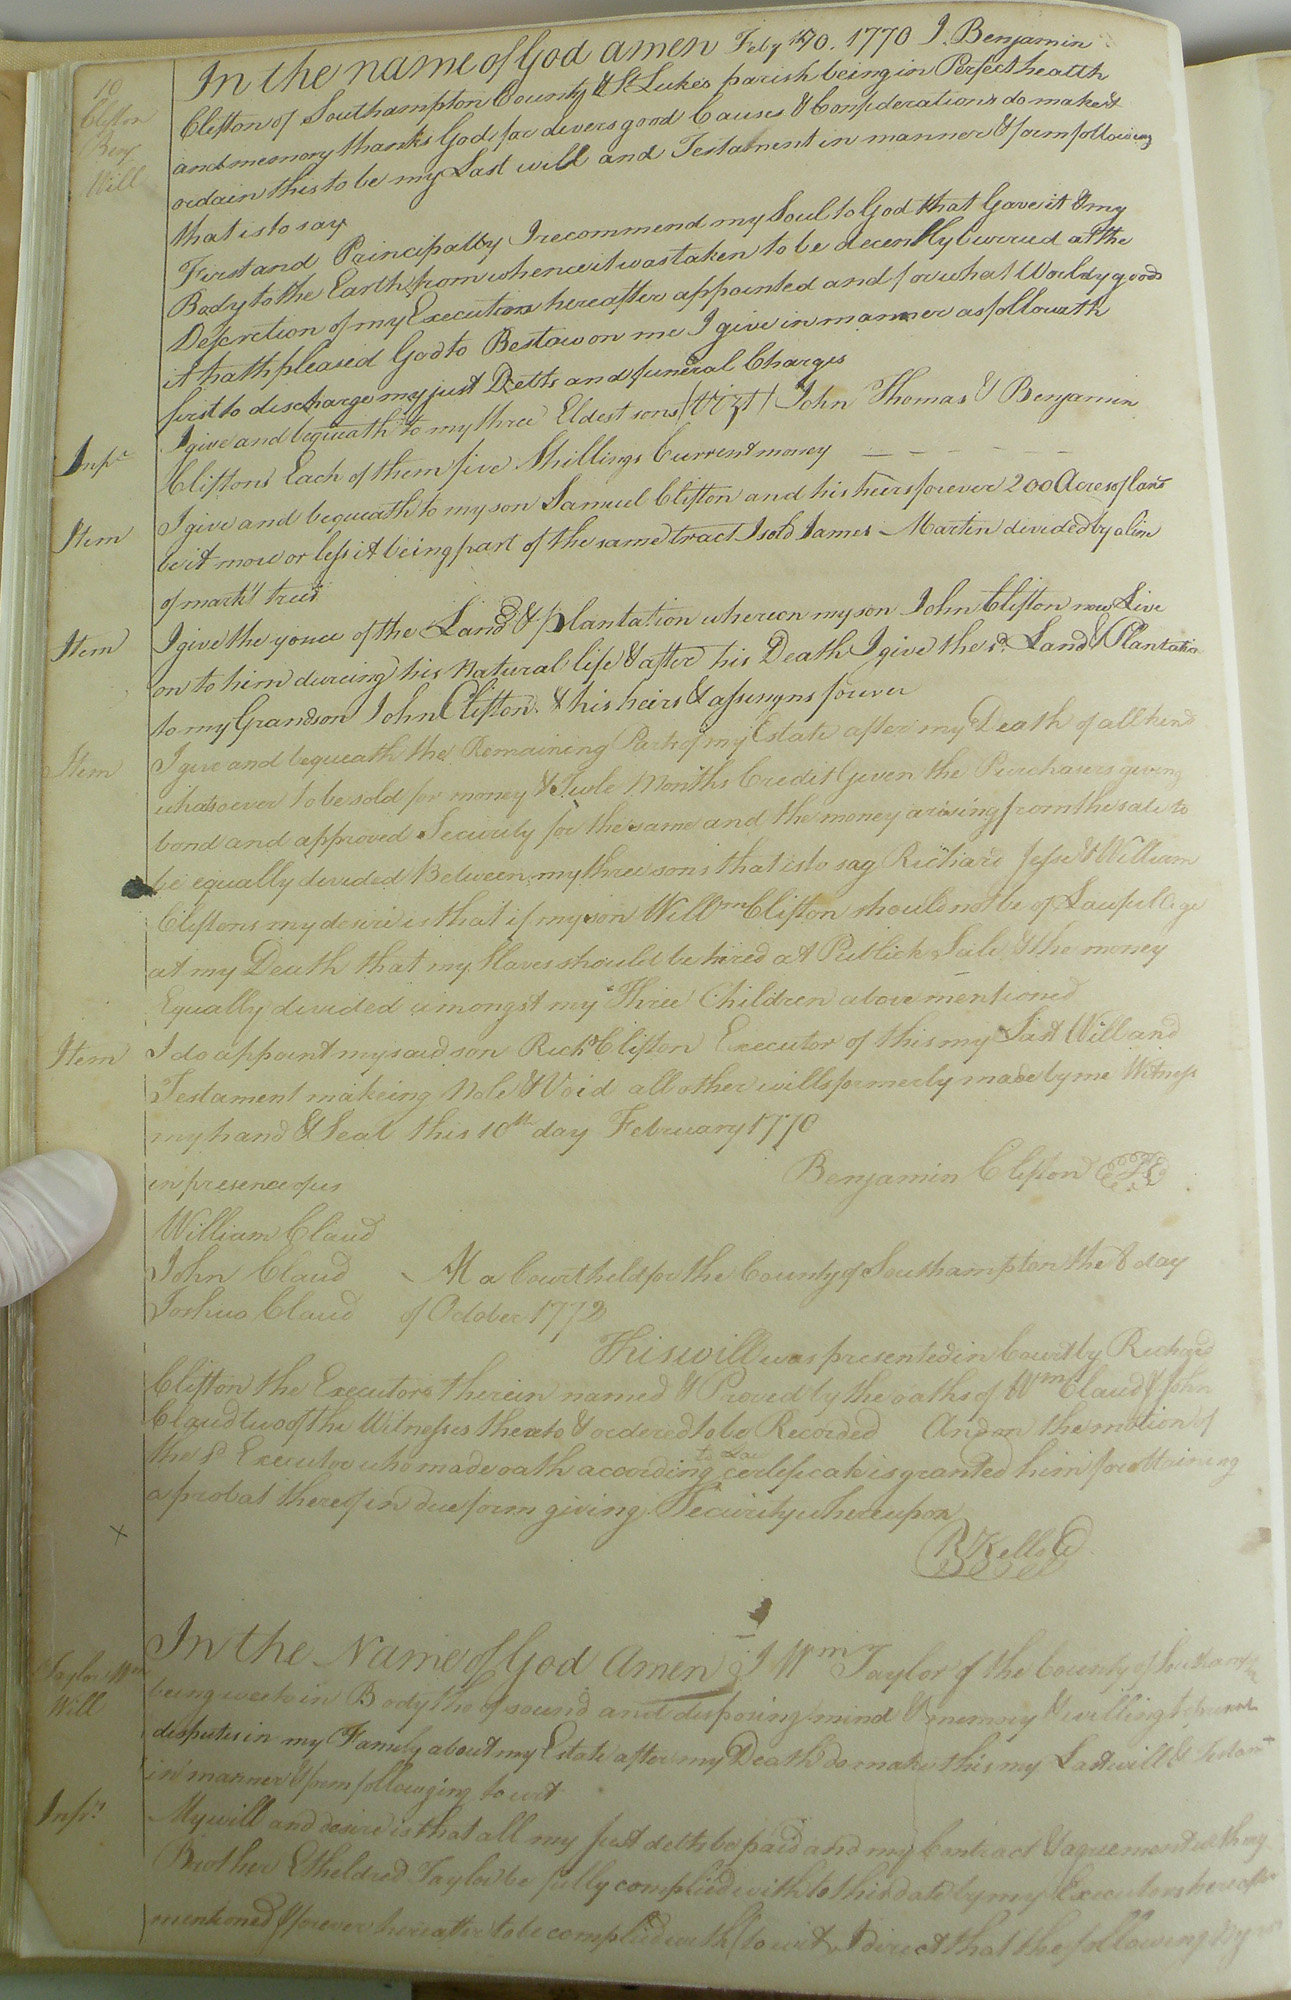 10
Clifton
Benj
Will
In the name of God amen Feby 10. 1770 I. Benjamin
Clifton of Southampton County & St Lukes parish being in Perfect health
and memory thanks God for divers good Causes & Considerations do make &
ordain this to be my Last will and Testament in manner & form following
that is to say
First and Principally I recommend my Soul to God that Gave it & my
Body to the Earth from whence it was taken to be decently burried at the
Descretion of my Executors hereafter appointed and for what Worldy goods
it hath pleased God to Bestow on me I give in manner as followeth
first to discharge my just Debts and funeral Charges
Inps I give and bequeath to my three Eldest sons (Vizt) John Thomas & Benjamin
Cliftons Each of them five Shillings Current money
Item I give and bequeath to my son Samuel Clifton and his heirs forever 200 Acres of land
be it more or less it being part of the same tract I sold James Martin divided by a line
of mark't trees
Item I give the youce of the Land & plantation whereon my son John Clifton now Live
on to him dureing his Natural life & after his Death I give the sd. Land & Plantation
to my Grandson John Clifton & his heirs & assigns forever
Item I give and bequeath the Remaining Part of my Estate after my Death of all kind
whatsoever to be sold for money & Twele Months Credit Given the Purchasers giving
bond and approved Security for the same and the money arising from the sale to
be equally divided Between my three sons that is to say Richard Jesse & William
Cliftons my desire is that if my son Willm Clifton should not be of Lawfull age
at my Death that my slaves should be hired at Publick Sale & the money
Equally divided amongst my Three Children above mentioned
Item I do appoint my said son Richd Clifton Executor of this my Last Will and
Testament makeing Nole & Void all other wills formerly made by me Witness
my hand & Seal this 10th day February 1770
in presence of us Benjamin Clifton LS
William Claud
John Claud At a Court held for the County of Southampton the 8 day
Joshua Claud of October 1772
This will was presented in Court by Richard
Clifton the Executor therein named & Proved by the oaths of Wm Claud & John
Claud two of the Witnesses thereto & ordered to be Recorded And on the motion of
the sd Executor who made oath according to Law certificate is granted him for obtaining
a probat thereof in due form giving Security whereupon
R Kello
Taylor Wm
Will
In the Name of God Amen I Wm Taylor of the County of Southampn
being weak in Body tho of sound and disposing mind & memory & willing to prevent
disputes in my Family about my Estate after my Death do make this my Last will & Testamt
in manner & form following to wit
Inps My will and desire is that all my just debts be paid and my Contract & agreement with my
Brother Etheldred Taylor be fully complied with to this date by my Executors hereafter
mentioned & forever hereafter to be complied with (to wit) I direct that the following